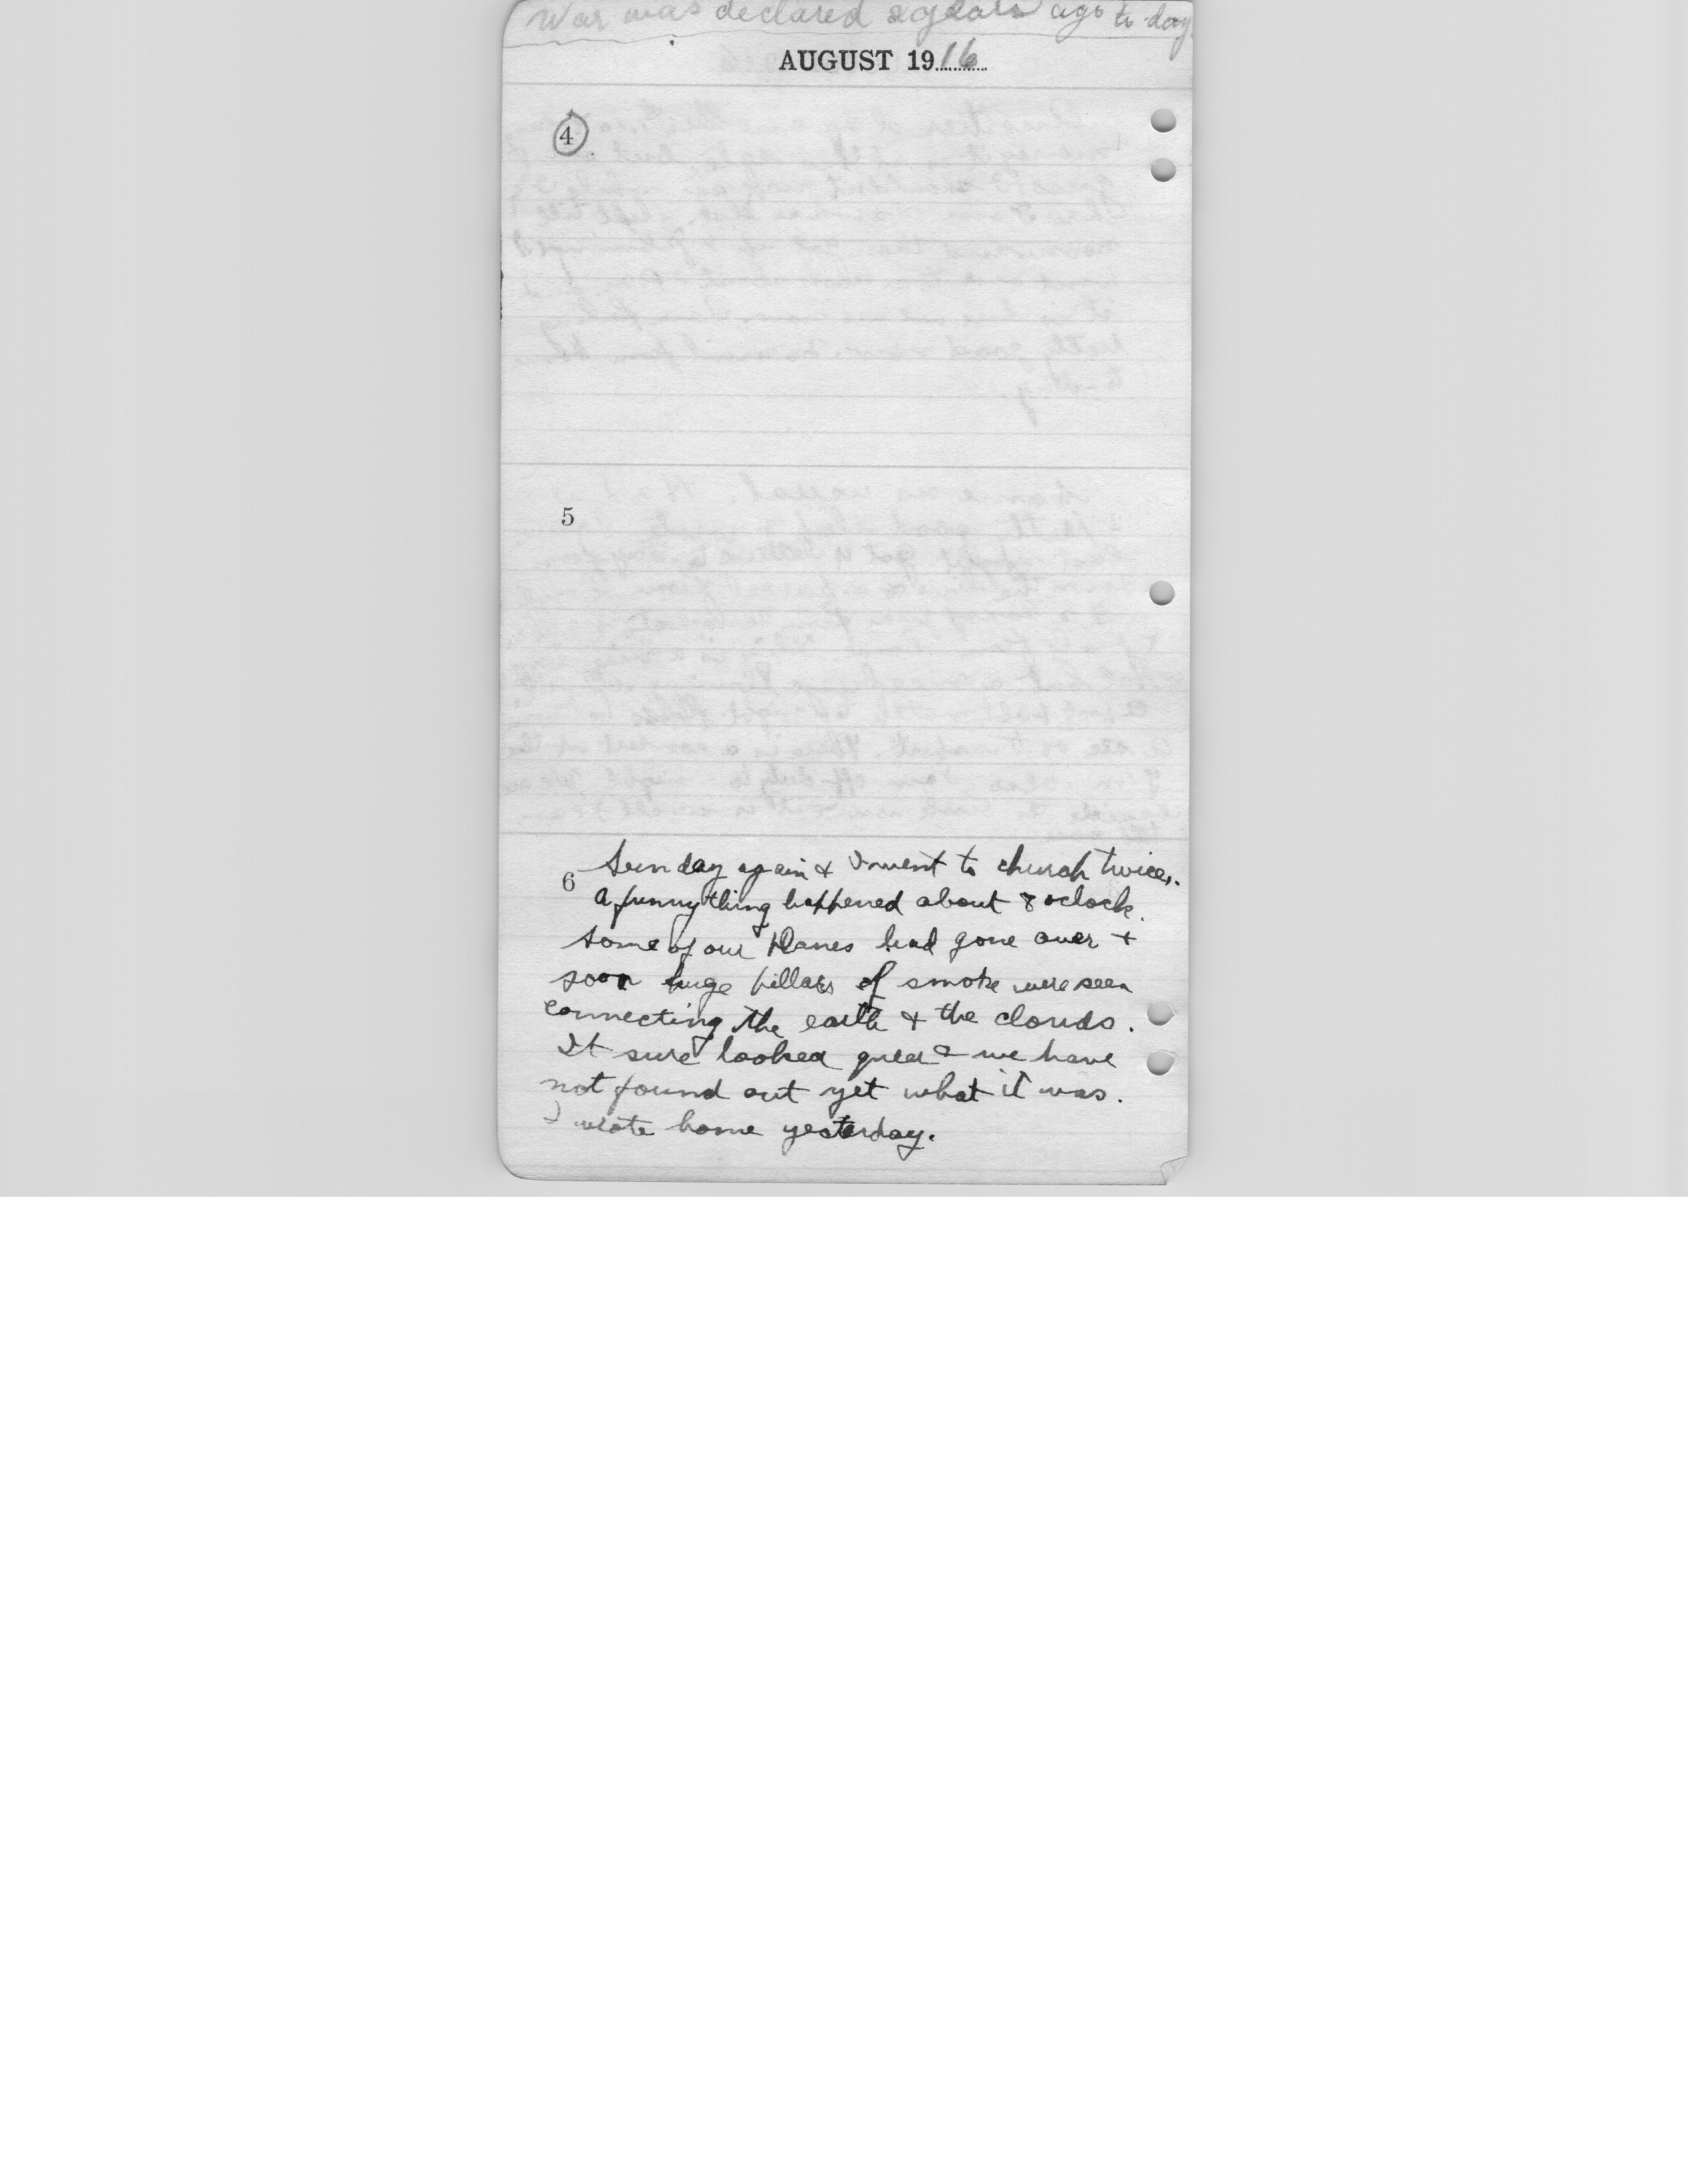 War was declared 2 years ago to-day
AUGUST 1916
4
5
6 Sunday again & I went to church twice.
A funny thing happened about 8 oclock.
Some of our Planes had gone over +
soon huge pillars of smoke were seen
connecting the earth & the clouds.
It sure looked queer & we have
not found out yet what it was.
I wrote home yesterday.